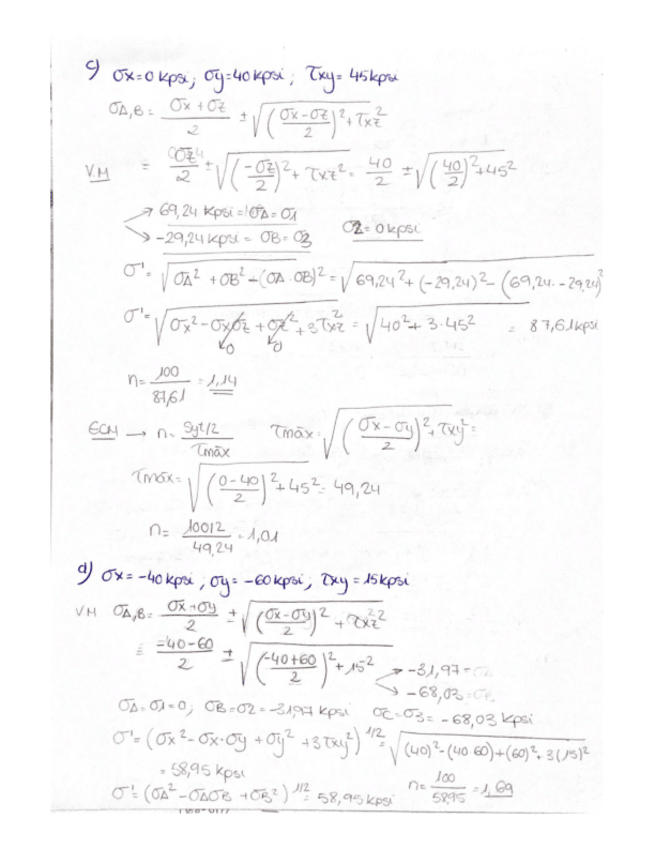 c) σx=0 kpsi; σy=40 kpsi; τxy= 45 kpsi
σA,B= (σx+σz)/2 ± √((σx-σz)/2)²+τxz²
V.M = σz/2 ± √((-σz)/2)²+τxz² = 40/2 ± √(40/2)²+45²
→ 69,24 kpsi = σA= σ1
→ -29,24 kpsi = σB= σ3 σ2= 0 kpsi
σ'= √σA²+σB²-(σA·σB)² = √69,24²+(-29,24)²-(69,24·-29,24)²
σ'= √σx²-σxσz+σz²+3τxz² = √40²+3·45² = 87,61 kpsi
→0 →0
n= 100/87,61 = 1,14
ECM → n= Sy/2/τmáx τmáx= √((σx-σy)/2)²+τxy² =
τmáx= √((0-40)/2)²+45² = 49,24
n= 100/2/49,24 = 1,01
d) σx= -40 kpsi; σy= -60 kpsi; τxy= 15 kpsi
VM σA,B= (σx+σy)/2 ± √((σx-σy)/2)²+τxz²
= (-40-60)/2 ± √((-40+60)/2)²+15² → -31,97 = σA
→ -68,03 = σB
σA=σ1=0; σB=σ2=-31,97 kpsi σC=σ3= -68,03 kpsi
σ'= (σx²-σx·σy+σy²+3τxy²)^1/2 = √(40)²-(40·60)+(60)²+3(15)²
= 58,95 kpsi n= 100/58,95 = 1,69
σ'= (σA²-σAσB+σB²)^1/2 = 58,95 kpsi